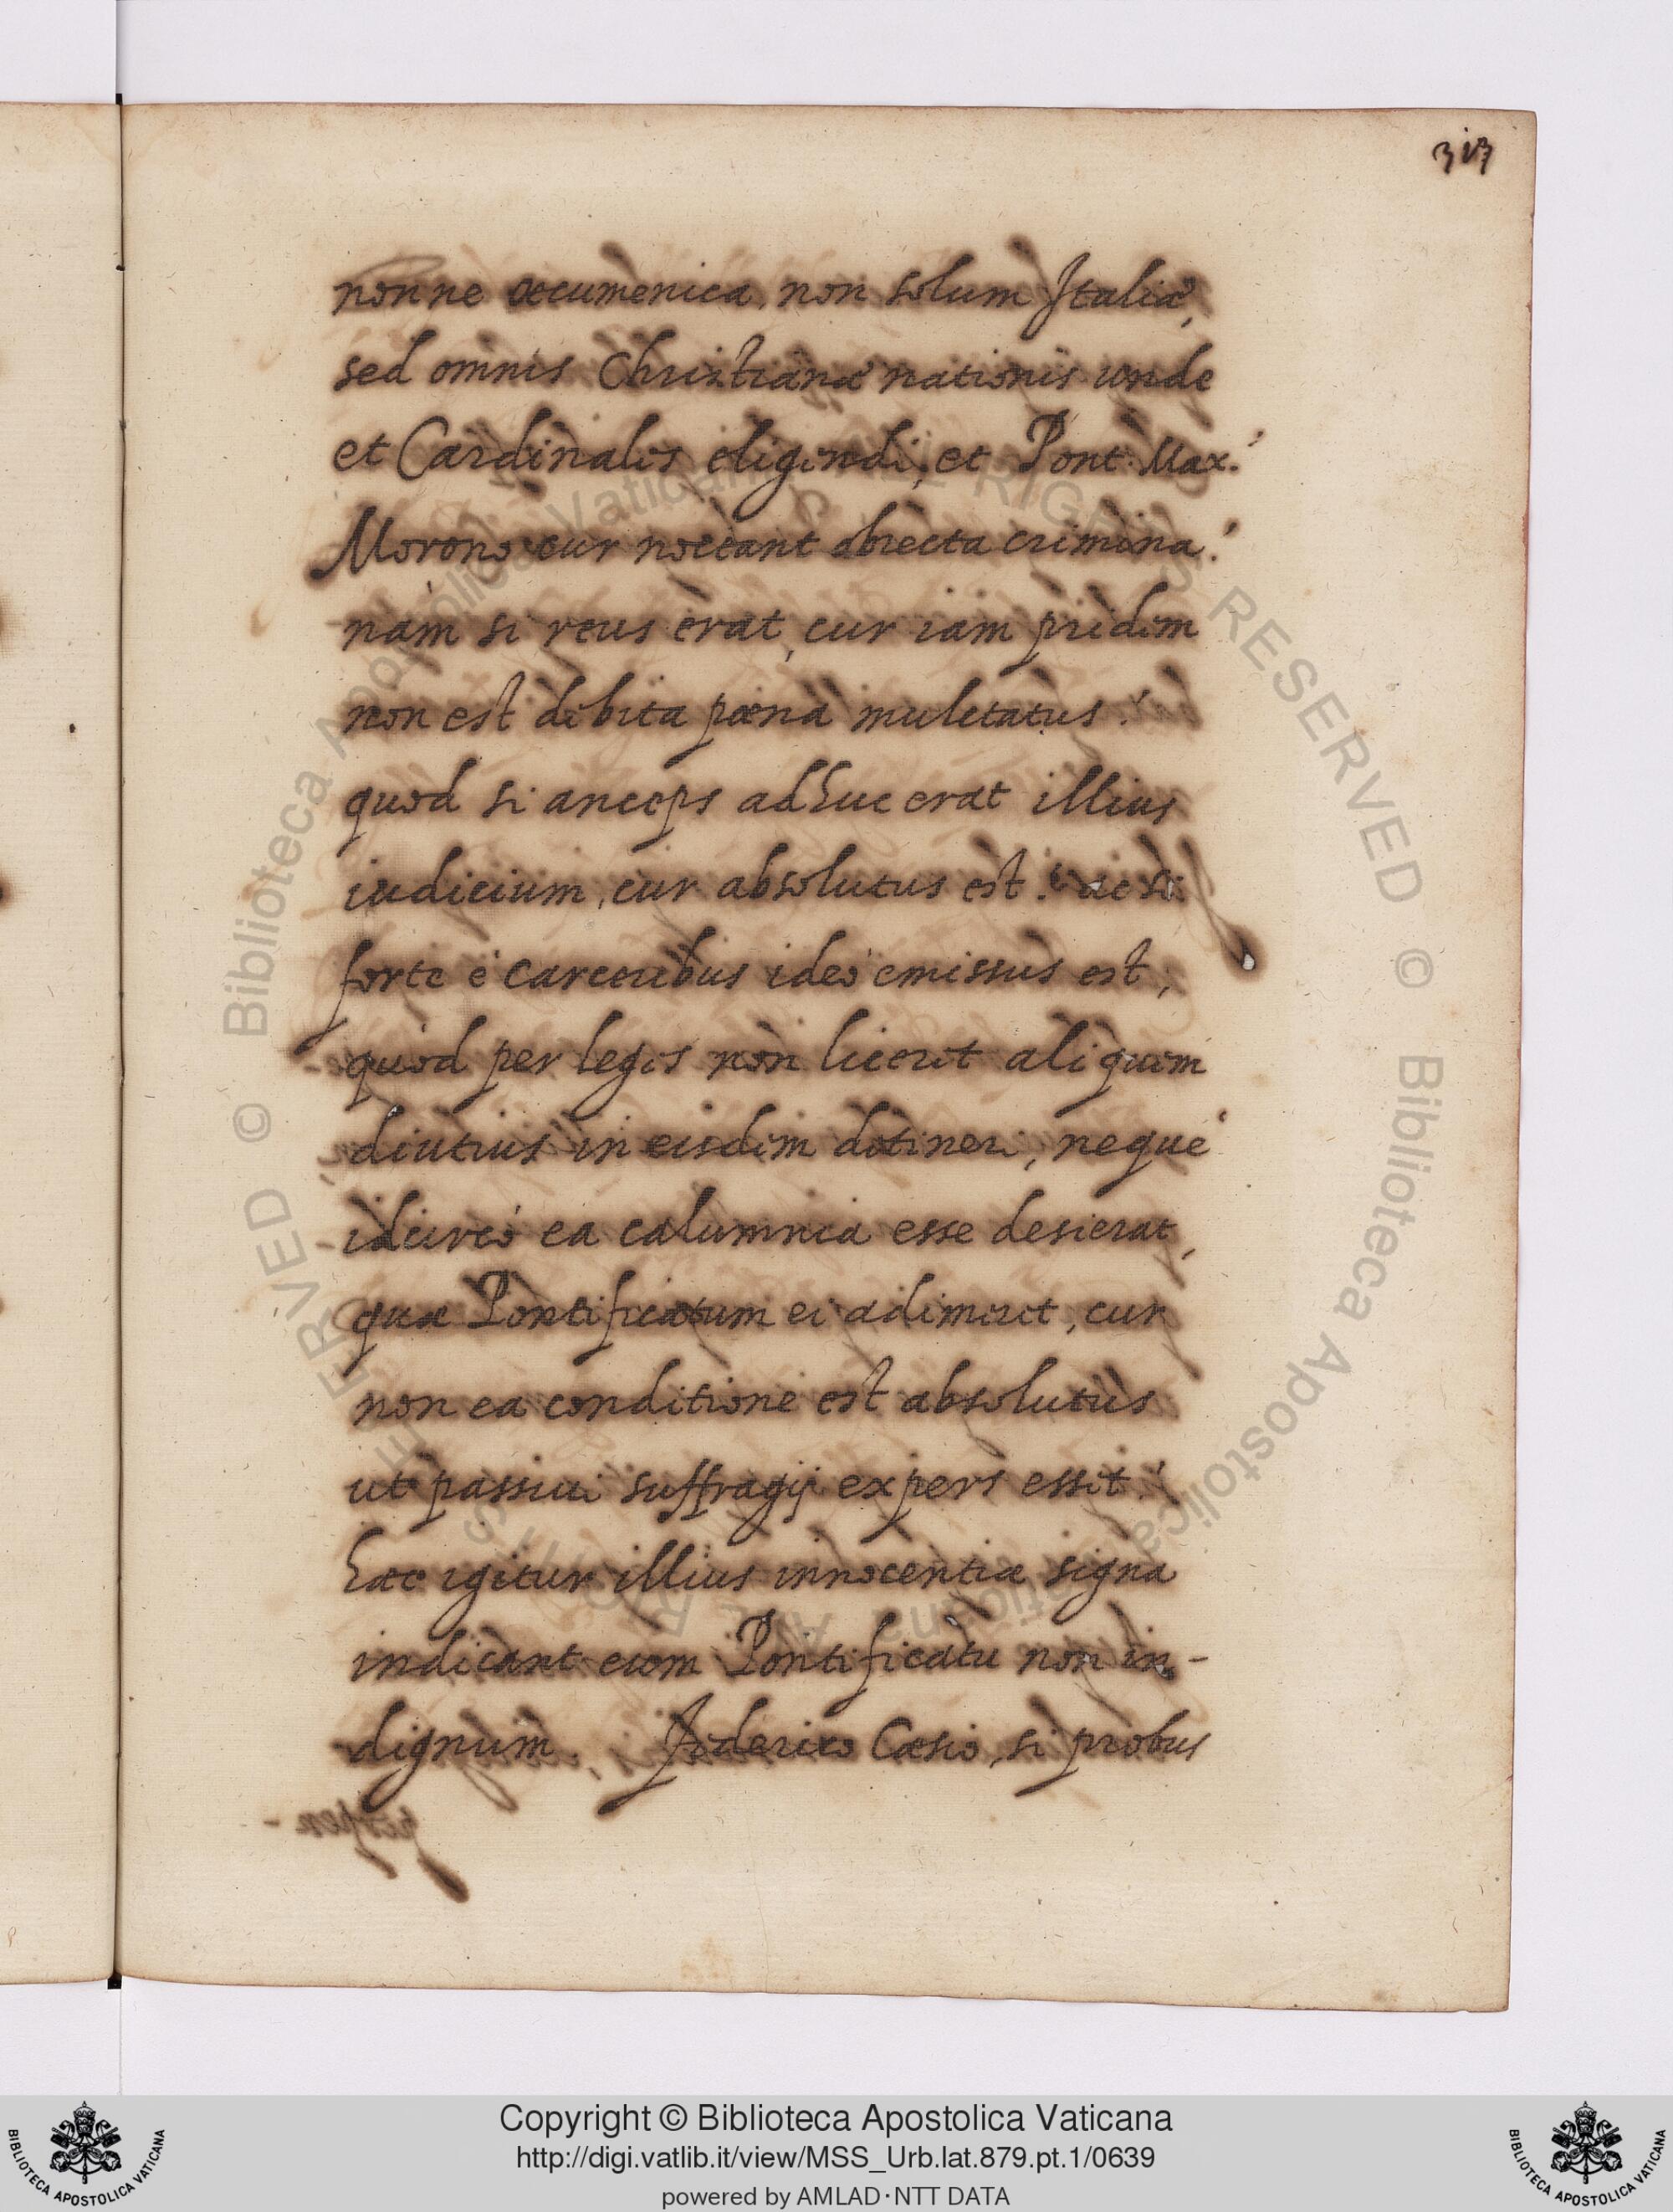 313
nonne œcumenica, non solum Italiæ,
sed omnis Christianæ nationis unde
et Cardinales eligendi, et Pont. Max.?
Morono cur noceant obiecta crimina?
nam si reus erat, cur iam pridem
non est debita pœna mulctatus?
quod si anceps adhuc erat illius
iudicium, cur absolutus est? ac si
forte è carceribus ideò emissus est,
quòd per leges non licerit aliquem
diutius in eisdem detineri, neque
idcircò ea calumnia esse desierat,
quæ Pontificatum ei adimeret, cur
non ea conditione est absolutus
ut passiui suffragij expers esset?
hæc igitur illius innocentiæ signa
indicant eum Pontificatu non in-
dignum. Federico Cæsio, si probus
Biblioteca Apostolica Vaticana ALL RIGHTS RESERVED © Biblioteca Apostolica Vaticana ALL RIGHTS RESERVED ©
Copyright © Biblioteca Apostolica Vaticana
http://digi.vatlib.it/view/MSS_Urb.lat.879.pt.1/0639
powered by AMLAD·NTT DATA
BIBLIOTECA APOSTOLICA VATICANA
BIBLIOTECA APOSTOLICA VATICANA